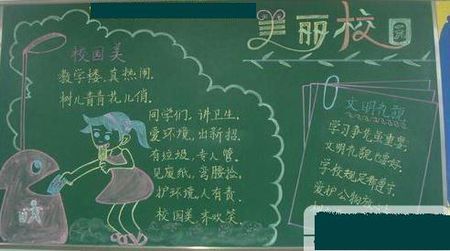 美丽校园
校园美
教学楼,真热闹,
树儿青青花儿俏。
同学们,讲卫生,
爱环境,出新招,
有垃圾,专人管,
见废纸,弯腰捡,
护环境,人有责,
校园美,齐欢笑。
文明礼貌
学习争先虽重要,
文明礼貌也需好。
学校规定都遵守,
爱护公物